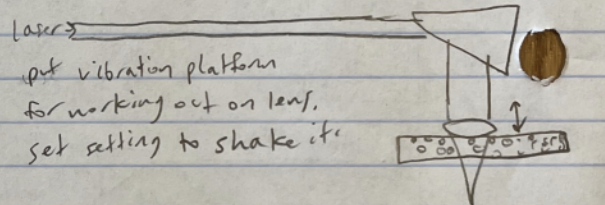 Laser
put vibration platform
for working out on lens.
set setting to shake it.